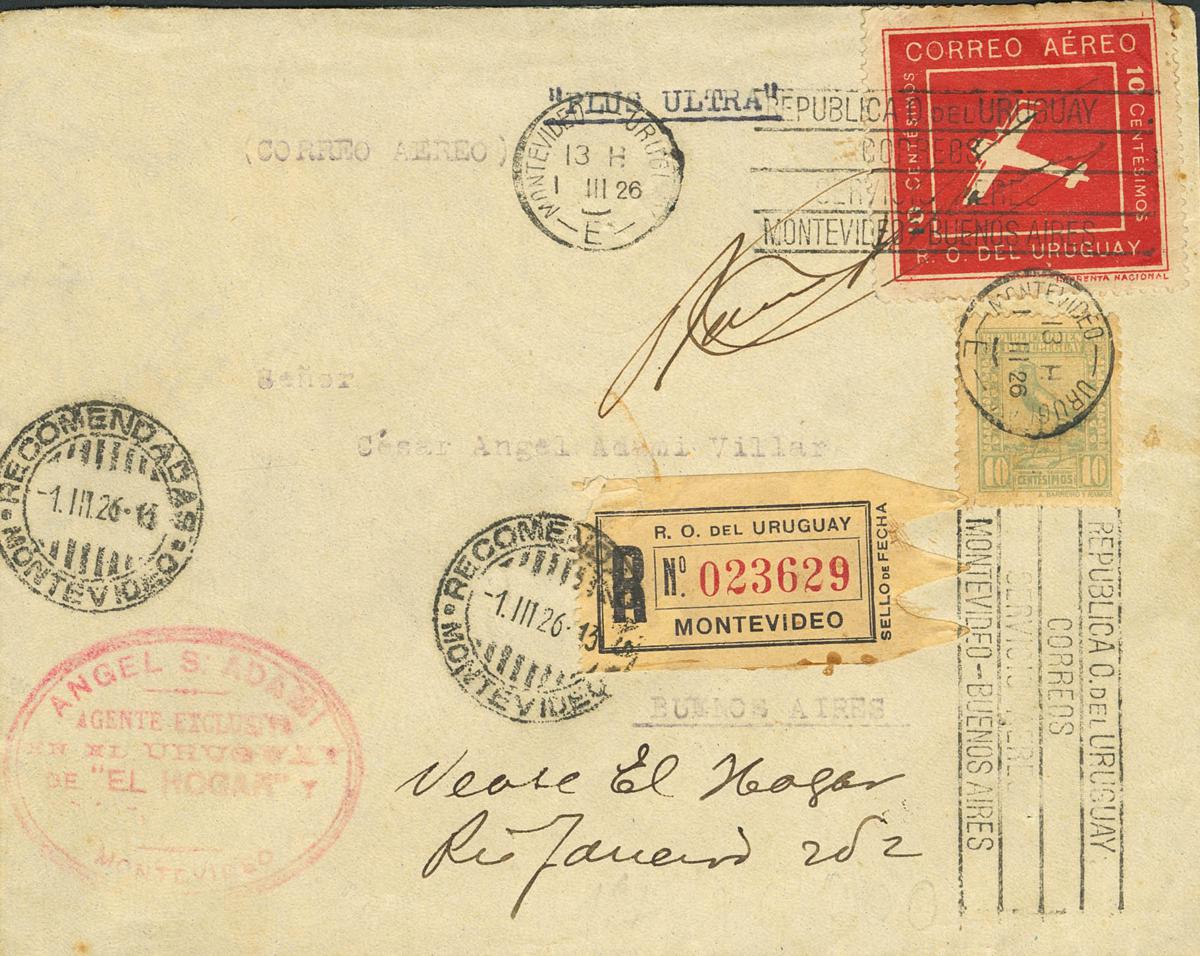 "PLUS ULTRA"
(CORREO AEREO)
MONTEVIDEO URUGUAY
13 H
1 III 26
E
REPUBLICA O. DEL URUGUAY
CORREOS
SERVICIO AEREO
MONTEVIDEO-BUENOS AIRES
CORREO AÉREO
10 CENTÉSIMOS
10 CENTÉSIMOS
R. O. DEL URUGUAY
IMPRENTA NACIONAL
MONTEVIDEO URUGUAY
13 H
1 III 26
E
10 CENTÉSIMOS 10
A. BARREIRO Y RAMOS
Señor
César Angel Adami Villar
RECOMENDADAS
-1.III.26-13
MONTEVIDEO
RECOMENDADAS
-1.III.26-13
MONTEVIDEO
R. O. DEL URUGUAY
R Nº. 023629
MONTEVIDEO
SELLO DE FECHA
BUENOS AIRES
REPUBLICA O. DEL URUGUAY
CORREOS
SERVICIO AEREO
MONTEVIDEO-BUENOS AIRES
ANGEL S. ADAMI
AGENTE EXCLUSIVO
EN EL URUGUAY
DE "EL HOGAR" Y
MONTEVIDEO
Vease El Hogar
Rio Janeiro 262